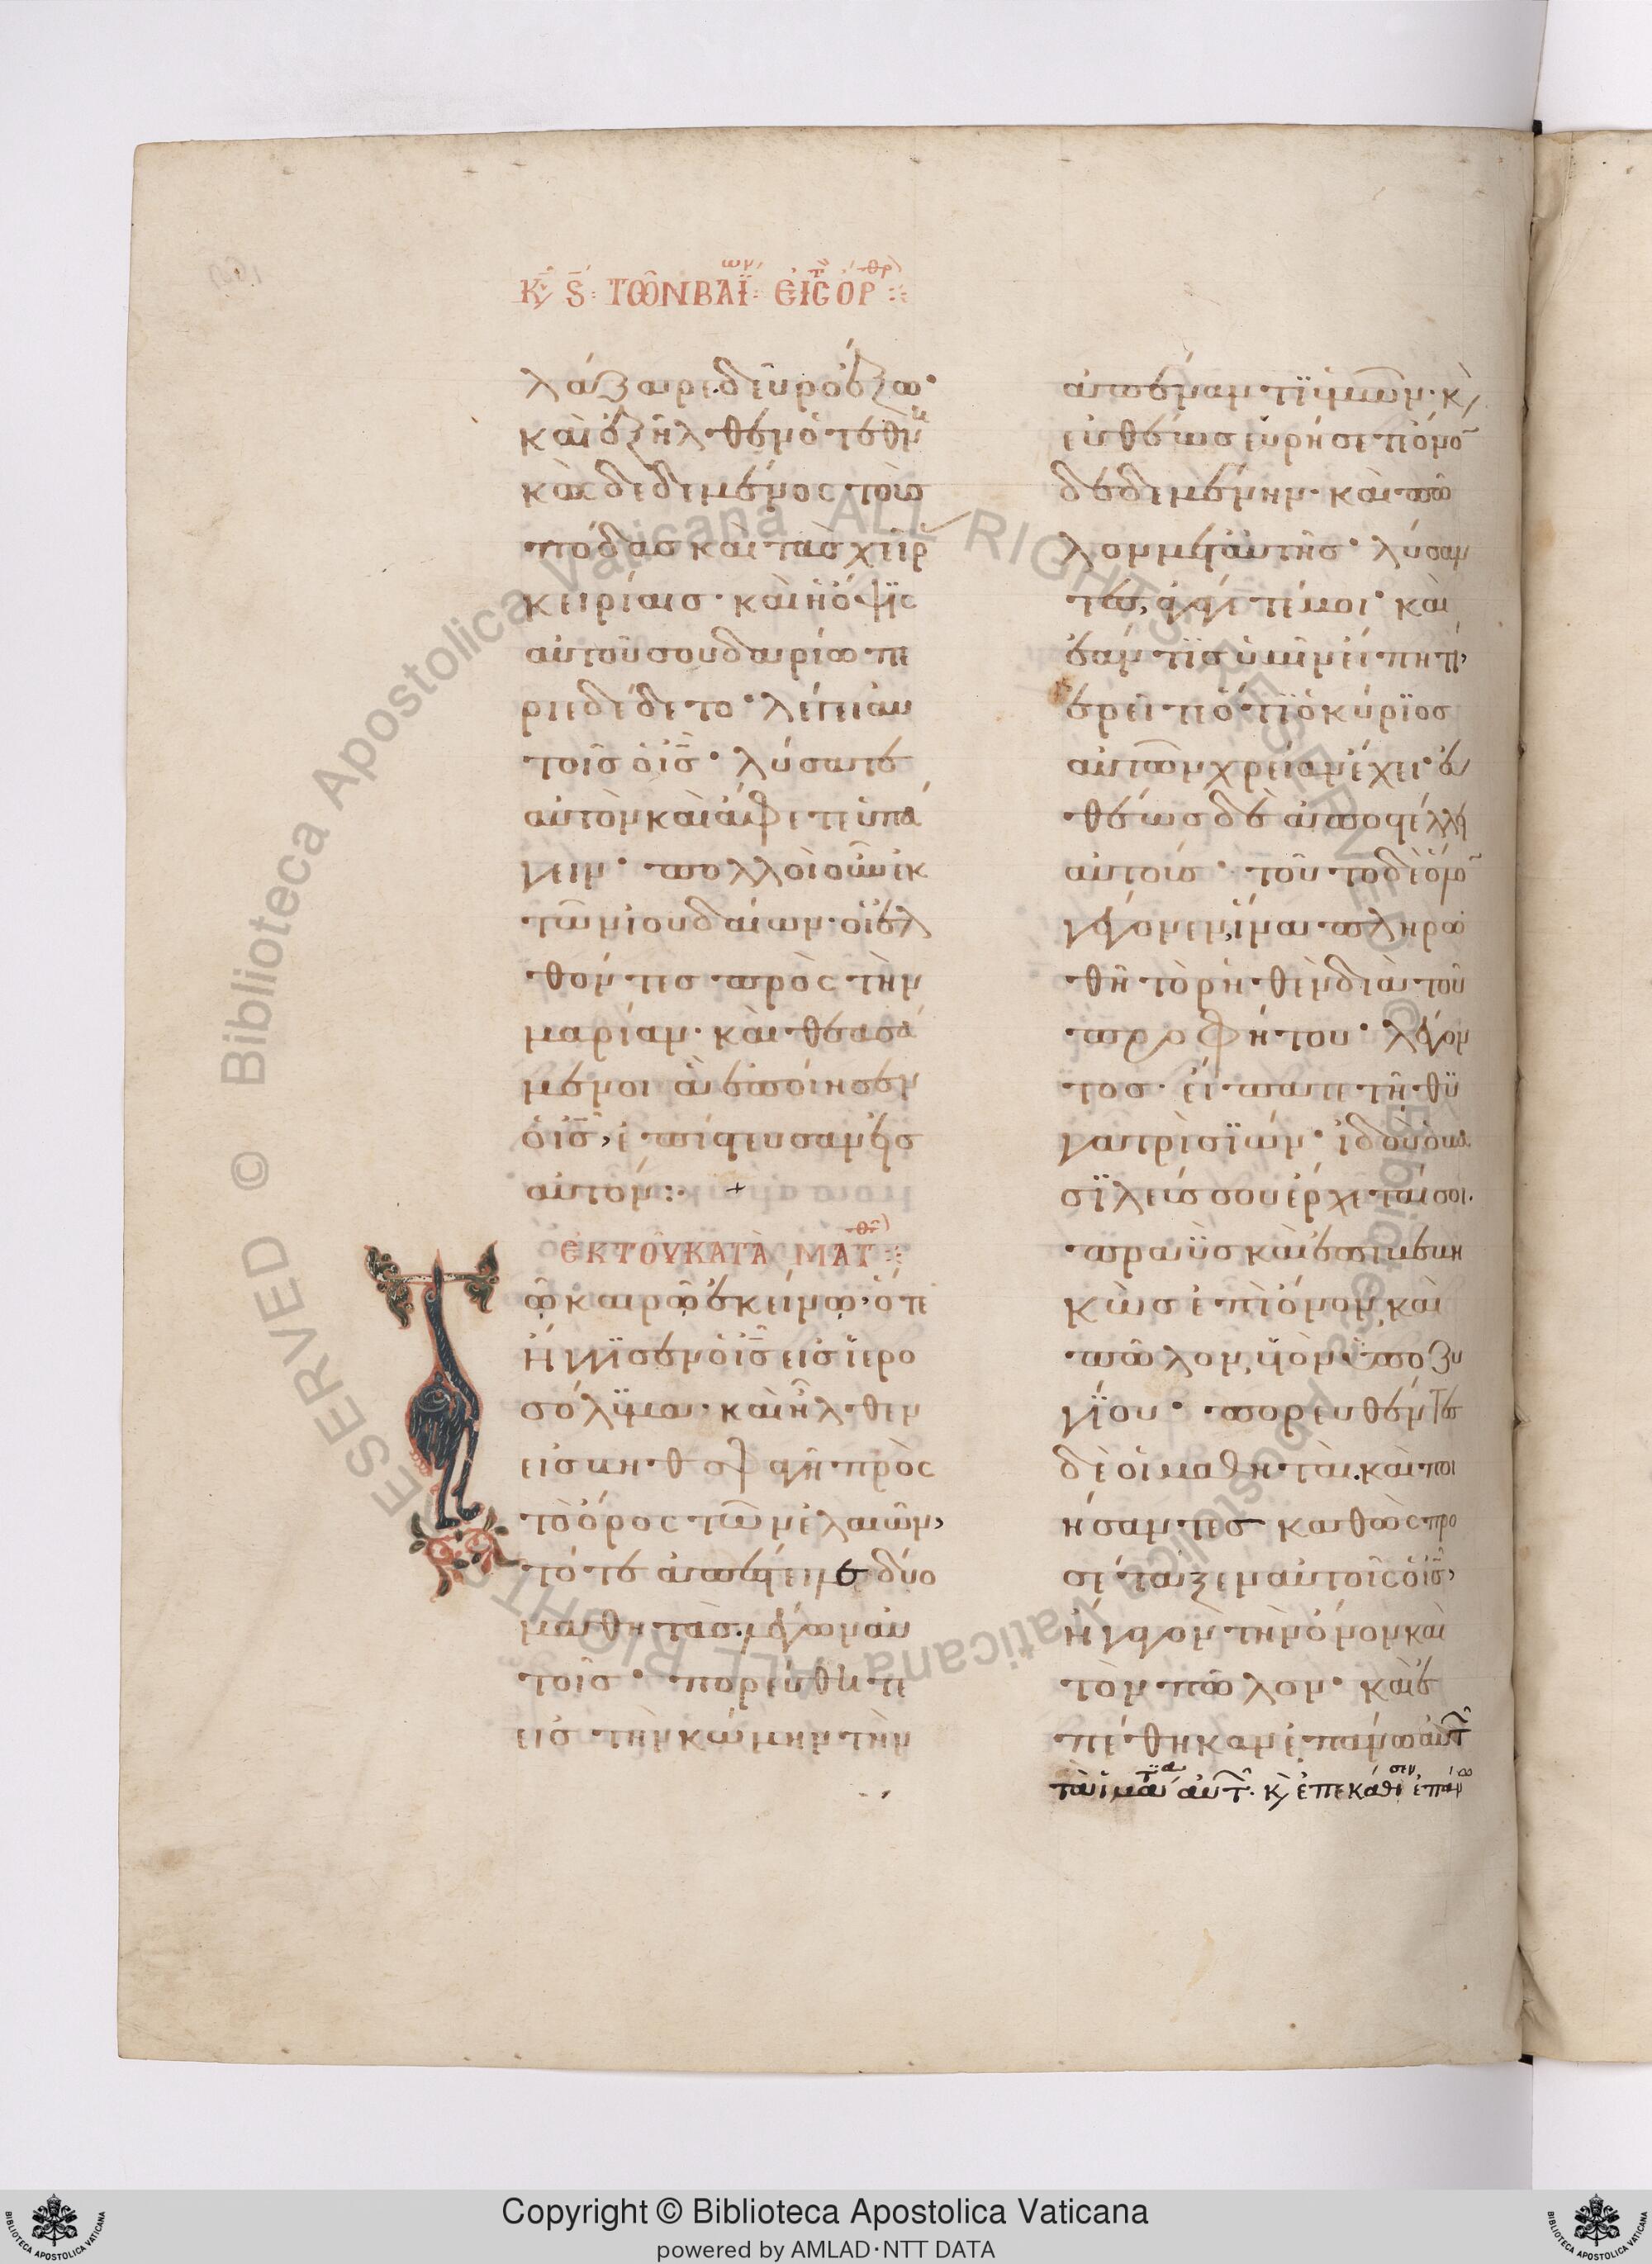 Κυ ς̄ : τῶν βαΐων : εἰς τ ὄρθρ :
λάζαρε δεῦρο ἔξω·
καὶ ἐξῆλθεν ὁ τεθνη
κὼς δεδεμένος τοὺς
πόδας καὶ τὰς χεῖρ
κειρίαις· καὶ ἡ ὄψις
αὐτοῦ σουδαρίω πε
ριεδέδετο· λέγει αυ
τοῖς ὁ ις̄· λύσατε
αὐτὸν καὶ ἄφετε ὑπά
γειν· πολλοὶ οὖν ἐκ
τῶν ἰουδαίων· οἱ ἐλ
θόντες πρὸς τὴν
μαρίαν· καὶ θεασά
μενοι ἃ ἐποίησεν
ὁ ις̄, ἐπίστευσαν εἰς
αὐτόν: +
ἐκ τοῦ κατὰ Ματθ :
ῶ καιρῶ ἐκείνω, ὅτε
ἤγγισεν ὁ ις̄ εἰς ἱερο
σόλυμα· καὶ ἦλθεν
εἰς βηθσφαγῆ πρὸς
τὸ ὄρος τῶν ἐλαιῶν,
τότε ἀπέστειλε δύο
μαθητὰς λέγων αὐ
τοῖς· πορεύθητε
εἰς τὴν κώμην τὴν
ἀπέναντι ὑμῶν· κ(αὶ)
εὐθέως εὑρήσετε ὄνον
δεδεμένην· καὶ πῶ
λον μετ' αὐτῆς· λύσαν
τες, ἀγάγετέ μοι· καὶ
ἐάν τις ὑμῖν εἴπη τι,
ἐρεῖτε ὅτι ὁ κύριος
αὐτῶν χρείαν ἔχει· εὐ
θέως δὲ ἀποστέλλει
αὐτούς· τοῦτο δὲ ὅλον
γέγονεν, ἵνα πληρω
θῆ τὸ ῥηθὲν διὰ τοῦ
προφήτου· λέγον
τος· εἴπατε τῆ θυ
γατρὶ σιών· ἰδοὺ ὁ βα
σιλεύς σου ἔρχεταί σοι·
πραῢς καὶ ἐπιβεβη
κὼς ἐπὶ ὄνον, καὶ
πῶλον, υἱὸν ὑποζυ
γίου· πορευθέντες
δὲ οἱ μαθηταὶ· καὶ ποι
ήσαντες καθὼς προ
σέταξεν αὐτοῖς ὁ ις̄,
ἤγαγον τὴν ὄνον καὶ
τὸν πῶλον· καὶ ἐ
πέθηκαν ἐπάνω αὐτ
τὰ ἱμάτια αὐτ· κ(αὶ) ἐπεκάθισεν ἐπάνω
Copyright © Biblioteca Apostolica Vaticana
powered by AMLAD·NTT DATA